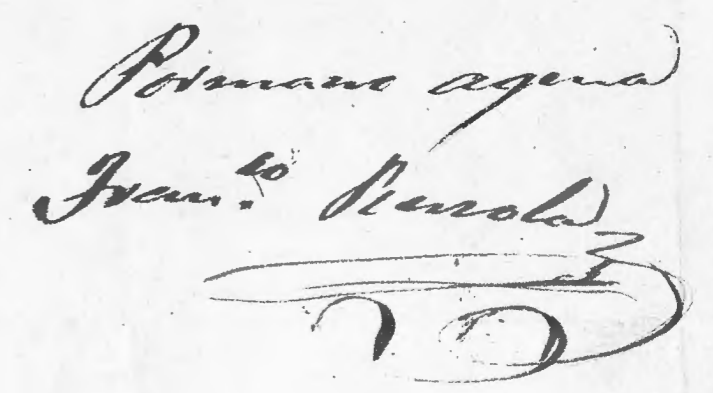 Por mano agena
Fran.co Rerrola